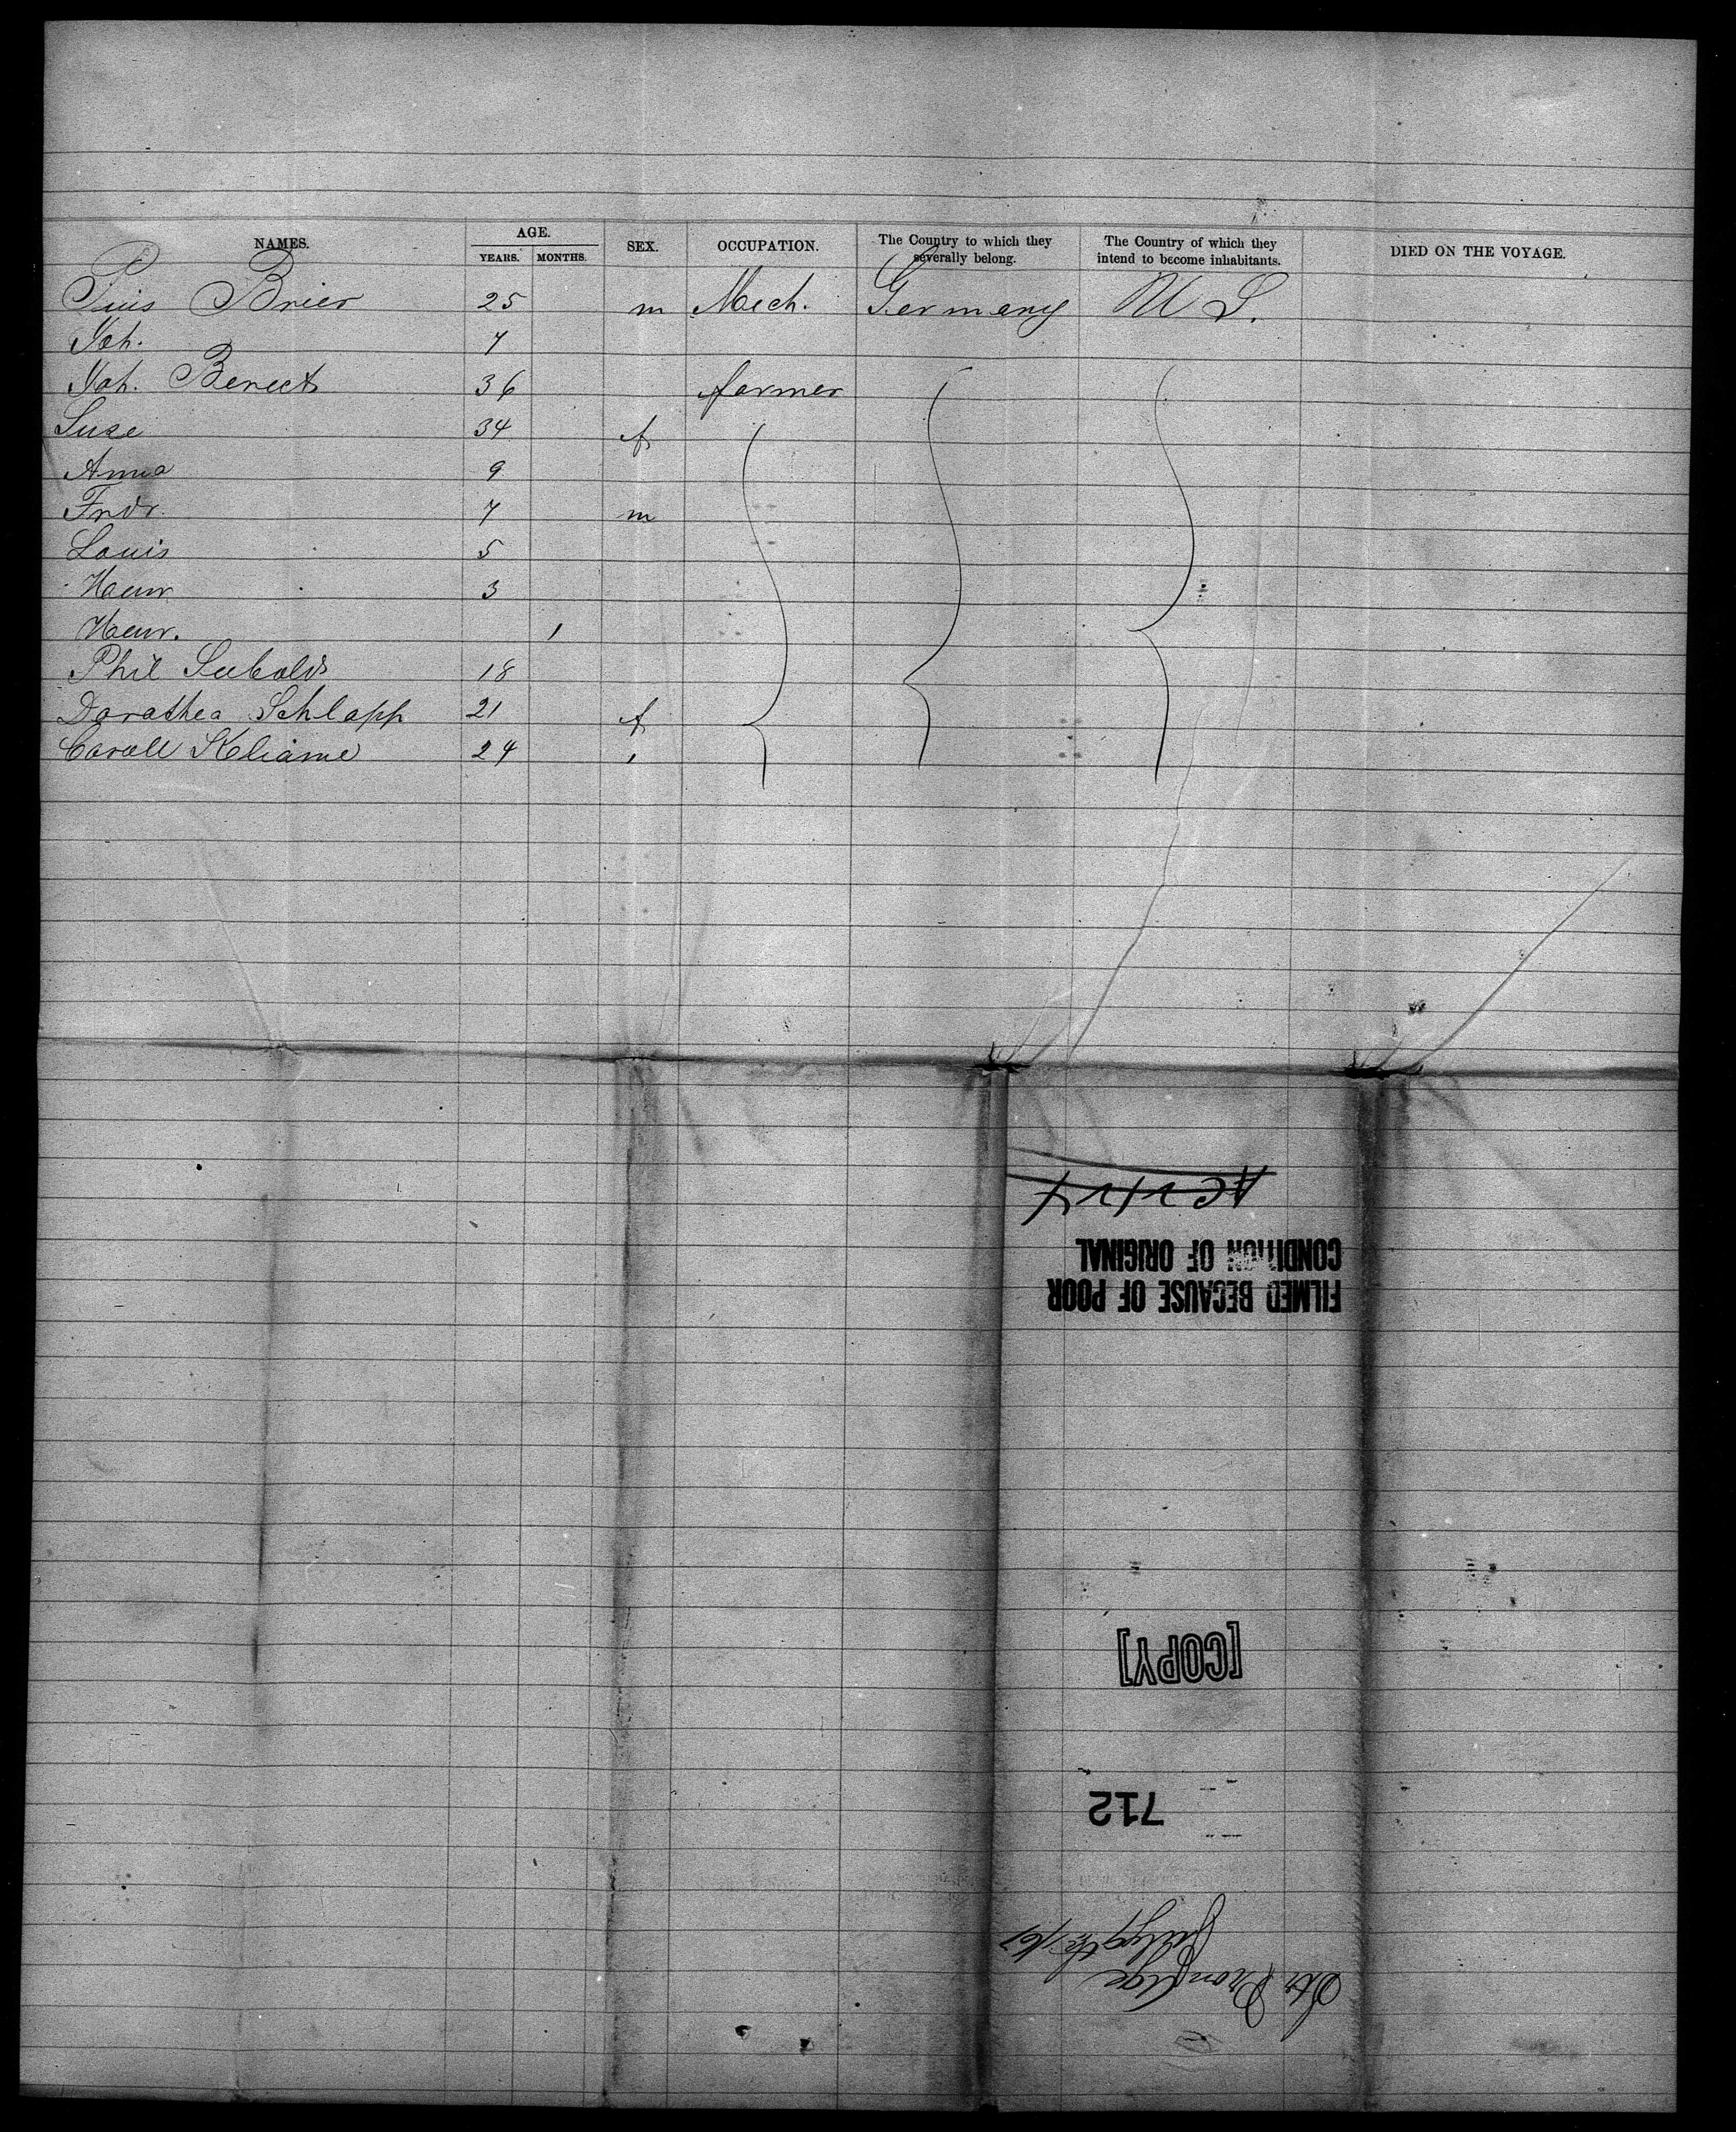 NAMES. AGE. YEARS. MONTHS. SEX. OCCUPATION. The Country to which they severally belong. The Country of which they intend to become inhabitants. DIED ON THE VOYAGE.
Pius Brier 25 m Mech. Germany U S.
Joh. 7
Joh. Benect 36 farmer
Suse 34 f
Anna 9
Fridr. 7 m
Louis 5
3
1
Phil Seebold 18
Dorathea Schlapp 21 f
24 "
FILMED BECAUSE OF POOR
CONDITION OF ORIGINAL
[COPY]
712
July 9th /67